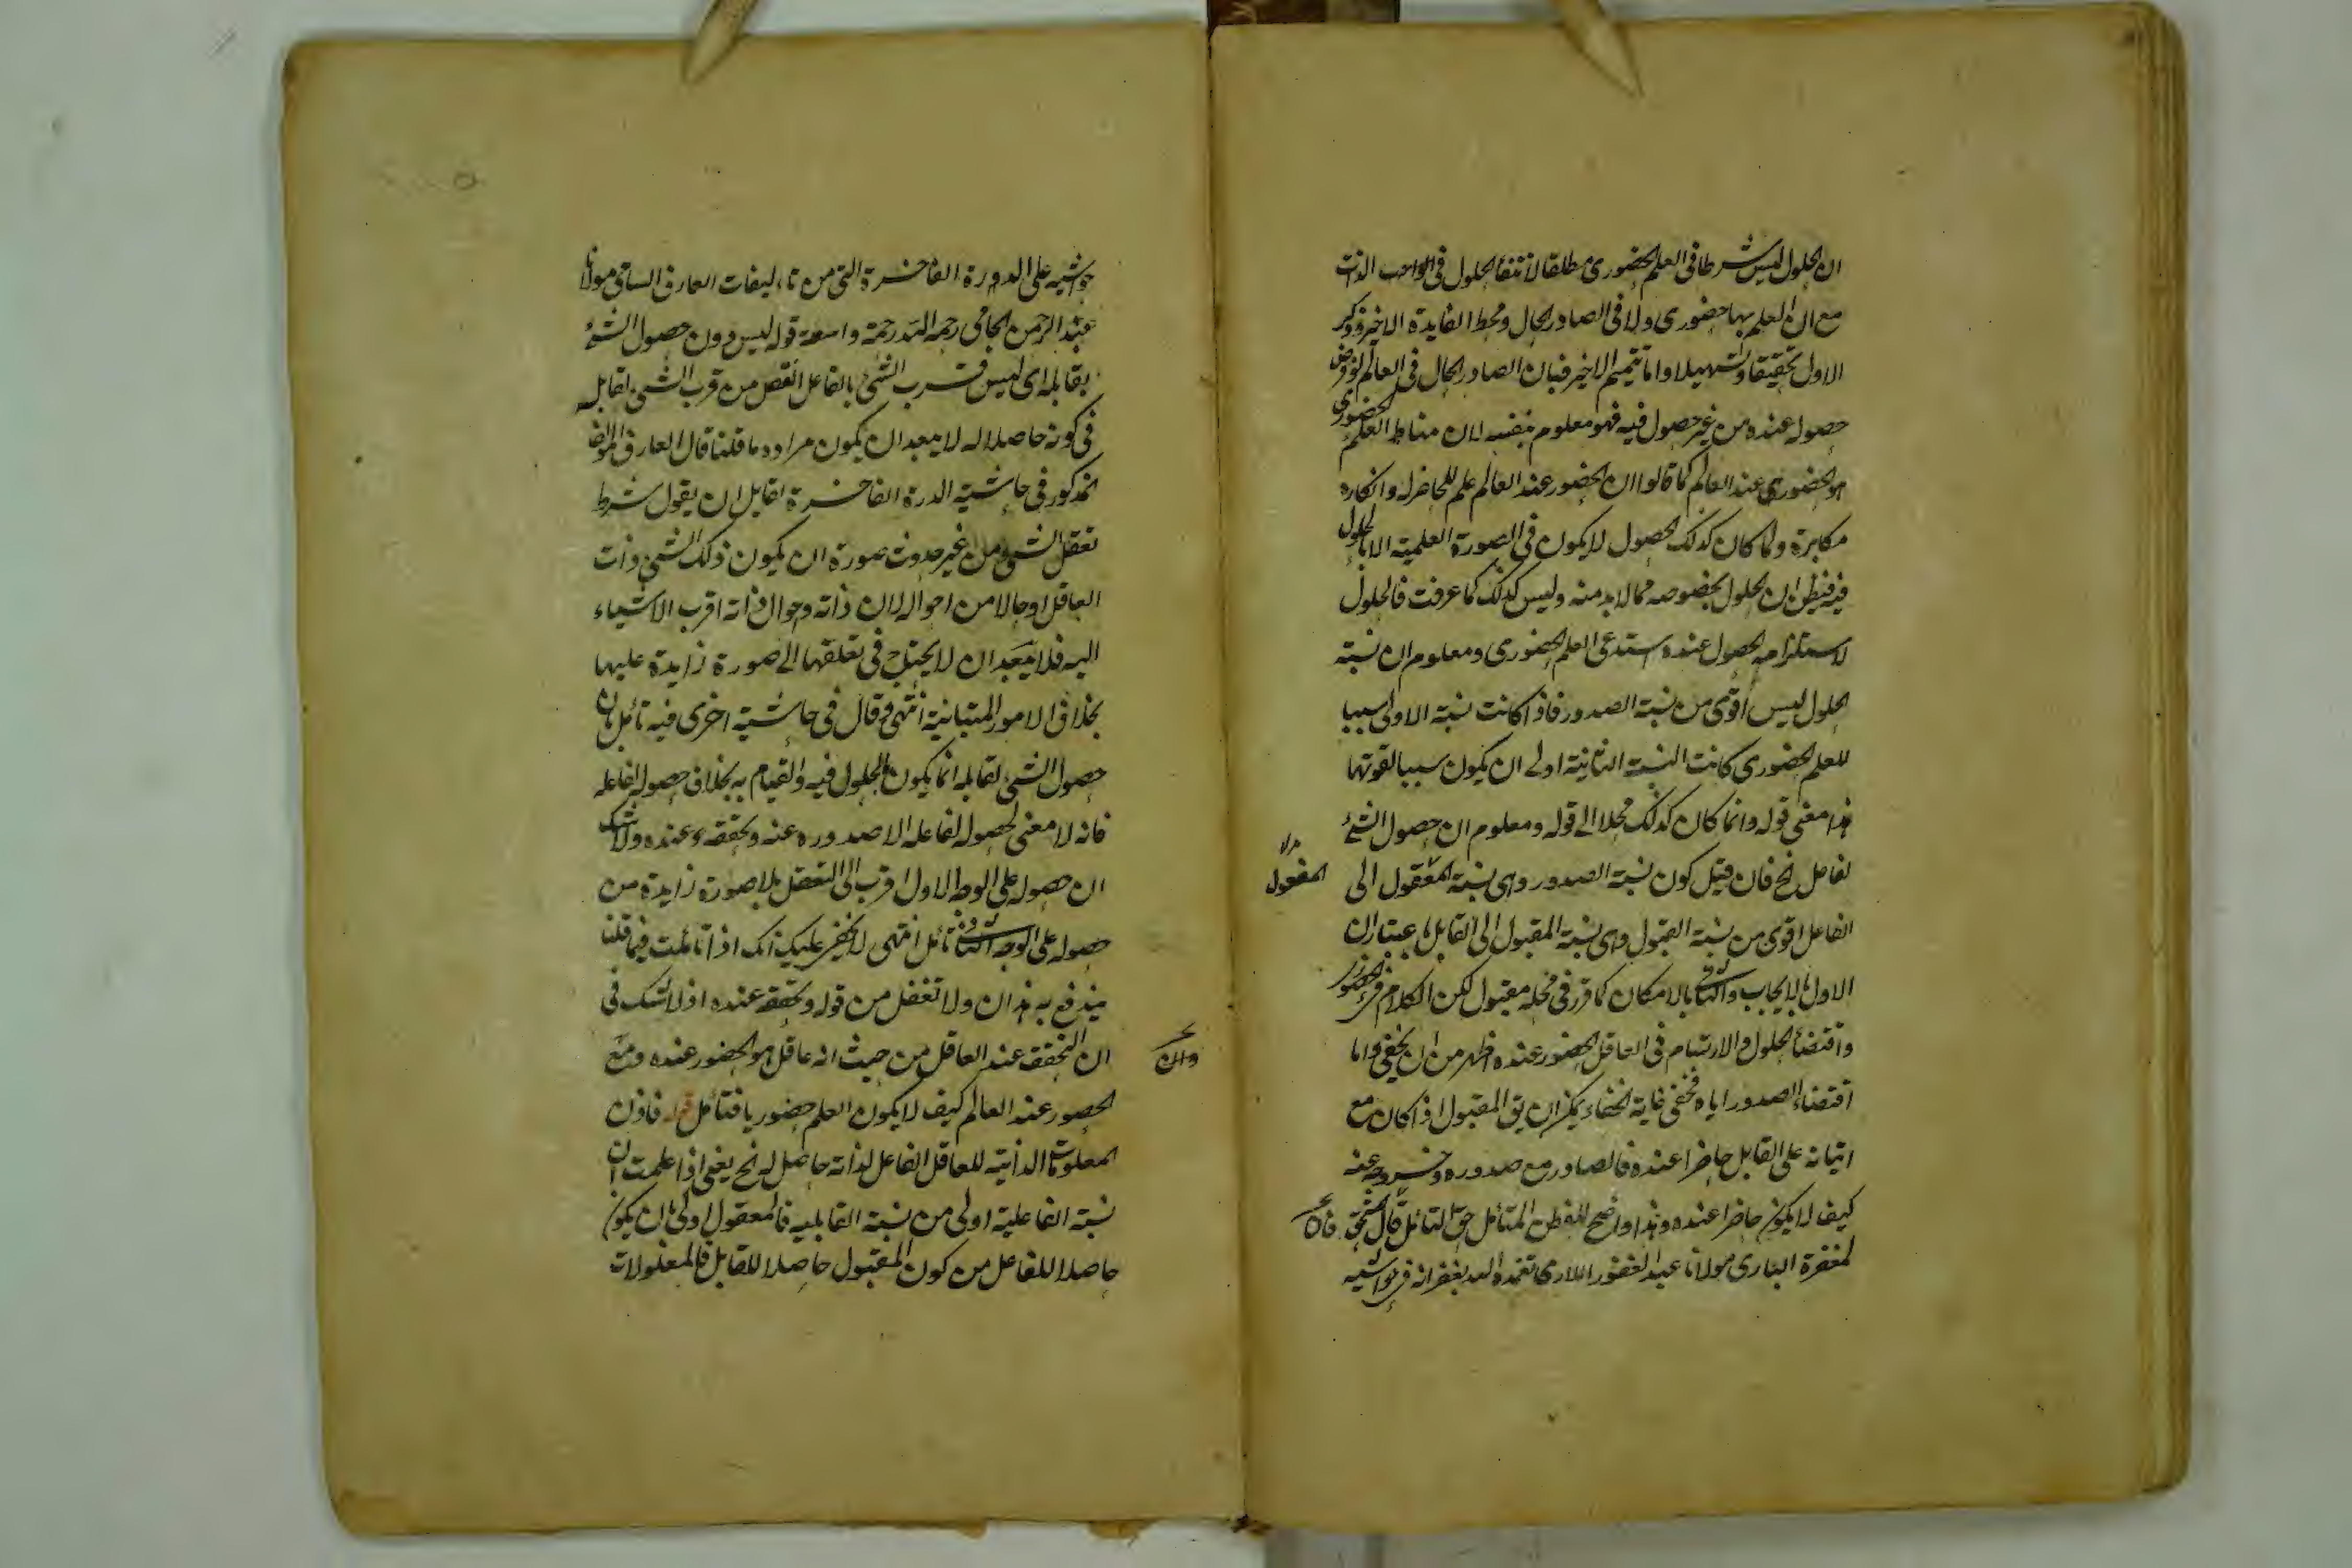 ان الحلول ليس شرطا فى العلم الحضورى مطلقا لانتفاء الحلول فى الواجب الذات
مع ان العلم بها حضورى ولا فى الصادر الحال ومحط الفايدة الاخير وذكر
الاول تحقيقا وتسهيلا واما تتميم الاخير فبان الصادر الحال فى العالم لو فرض
حصوله عنده من غير حصول فيه فهو معلوم بنفسه لان مناط العلم الحضورى
هو الحضور عند العالم كما قالوا ان الحضور عند العالم علم للحاضر له وانكاره
مكابرة ولما كان كذلك الحصول لا يكون فى الصورة العلمية الا بالحلول
فيه فيظن ان الحلول بخصوصه مما لا بد منه وليس كذلك كما عرفت فالحلول
لاستلزامه الحصول عنده استدعى العلم الحضورى ومعلوم ان نسبة
الحلول ليس اقوى من نسبة الصدور فاذا كانت نسبة الاولى سببا
للعلم الحضورى كانت النسبة الثانية اولى ان يكون سببا لقوتها
هذا معنى قوله وانما كان كذلك محلا الى قوله ومعلوم ان حصول الشئ
لفاعل الخ فان قيل كون نسبة الصدور وهى نسبة المعقول الى
المفعول
الفاعل اقوى من نسبة القبول وهى نسبة المقبول الى القابل باعتبار ان
الاول بالايجاب والثانى بالامكان كما قرر فى محله مقبول لكن الكلام فى الحضور
واقتضاء الحلول والارتسام فى العاقل الحضور عنده اظهر من ان يخفى واما
اقتضاء الصدور اياه فخفى غاية الخفاء يمكن ان يق المقبول اذا كان مع
اتيانه على القابل حاضرا عنده فالصادر مع صدوره وخروجه عنه
كيف لا يكون حاضرا عنده وهذا واضح للفطن المتأمل حق التأمل قال المحقق
لمغفرة البارى مولانا عبد الغفور اللارى تغمده الله بغفرانه فى حواشيه
حواشيه على الدورة الفاخرة التى من تاليفات العارف السامى مولانا
عبد الرحمن الجامى رحمه الله رحمة واسعة قوله ليس دون حصول الشئ
بقابله اى ليس قرب الشئ بالفاعل انقص من قرب الشئ لقابله
فى كونه حاصلا له لا يبعد ان يكون مراده ما قلنا قال العارف
المذكور فى حاشية الدرة الفاخرة لقايل ان يقول شرط
تعقل الشئ من غير حدوث صورة ان يكون ذلك الشئ ذات
العاقل او حالا من احواله لان ذاته واحوال ذاته اقرب الاشياء
اليه فلا يبعد ان لا يحتاج فى تعلقها الى صورة زايدة عليها
بخلاف الامور المتباينة انتهى وقال فى حاشية اخرى فيه تأمل فان
حصول الشئ لقابله انما يكون بالحلول فيه والقيام به بخلاف حصوله لفاعله
فانه لا معنى لحصوله لفاعله الا صدوره عنه وتحققه عنده ولا شك
ان حصوله على الوجه الاول اقرب الى التعقل بلا صورة زايدة من
حصوله على الوجه الثانى تأمل انتهى لا يخفى عليك انك اذا تأملت فيما قلنا
يندفع به هذان ولا تغفل من قوله وتحققه عنده اذ لا شك فى
ان التحقق عند العاقل من حيث انه عاقل هو الحضور عنده ومع
الحضور عند العالم كيف لا يكون العلم حضوريا فتأمل قوله فاذن
المعلولات الذاتية للعاقل الفاعل لذاته حاصل له الخ يعنى اذا علمت ان
نسبة الفاعلية اولى من نسبة القابلية فالمعقول اولى بان يكون
حاصلا للفاعل من كون المقبول حاصلا للقابل فالمعلولات